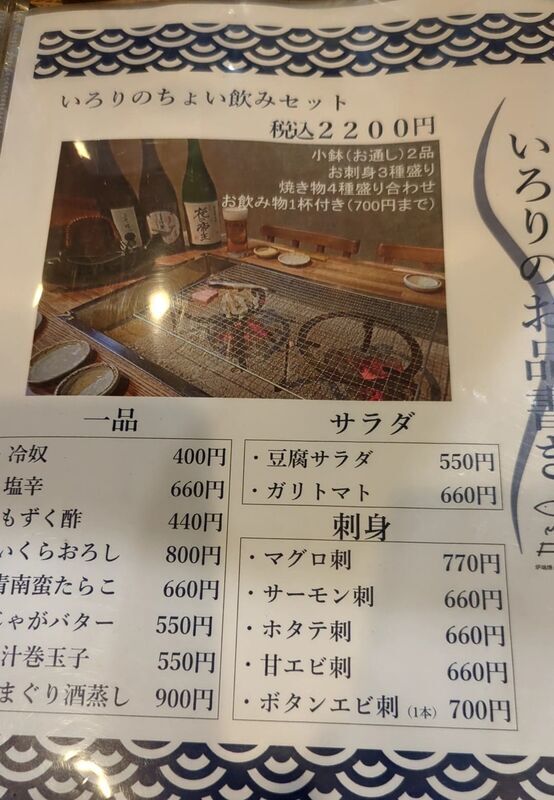 いろりのちょい飲みセット
税込2200円
小鉢(お通し)2品
お刺身3種盛り
焼き物4種盛り合わせ
お飲み物1杯付き(700円まで)
いろりのお品書き
一品
冷奴 400円
塩辛 660円
もずく酢 440円
いくらおろし 800円
青南蛮たらこ 660円
じゃがバター 550円
汁巻玉子 550円
まぐり酒蒸し 900円
サラダ
・豆腐サラダ 550円
・ガリトマト 660円
刺身
・マグロ刺 770円
・サーモン刺 660円
・ホタテ刺 660円
・甘エビ刺 660円
・ボタンエビ刺(1本) 700円